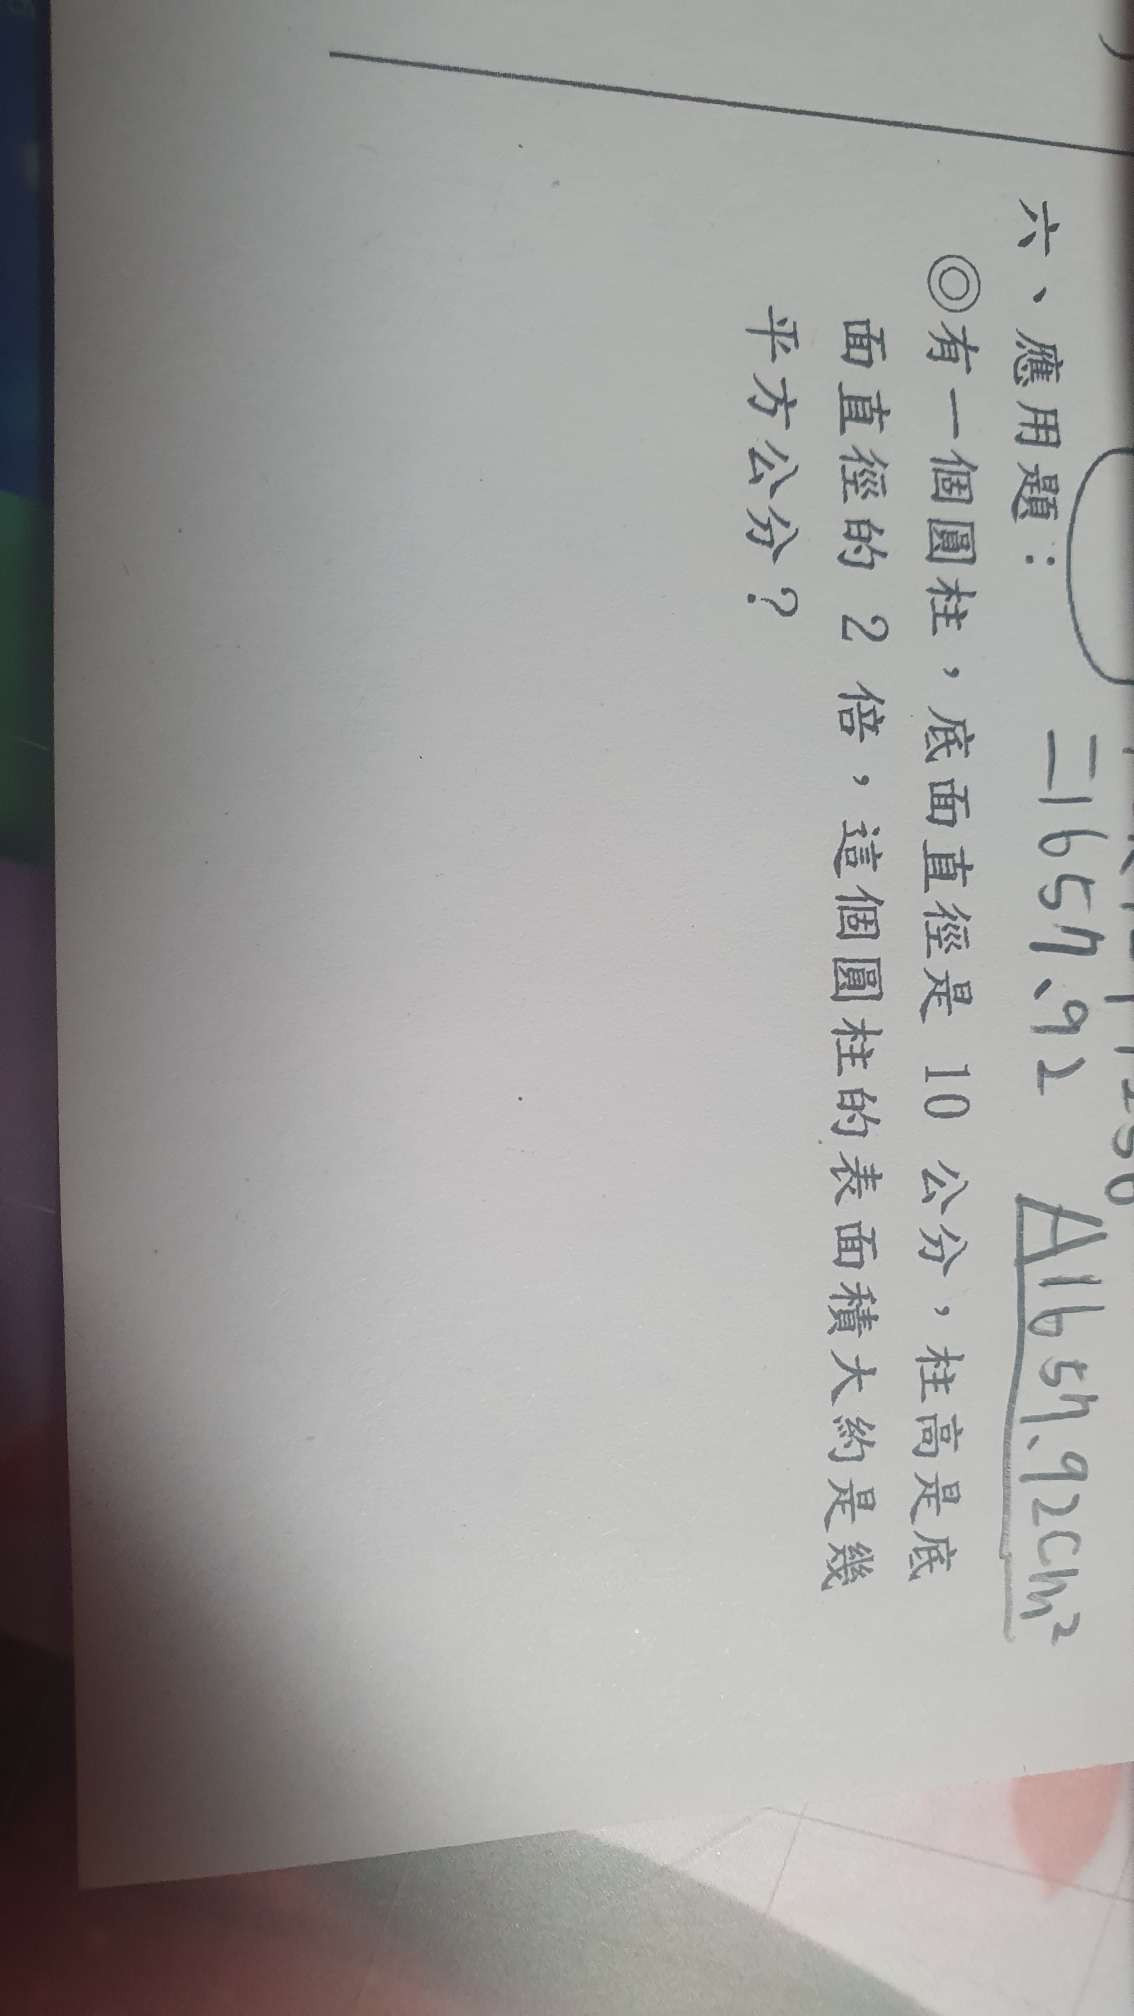 =1657.92 A1657.92cm²
六、應用題：
◎有一個圓柱，底面直徑是 10 公分，柱高是底
面直徑的 2 倍，這個圓柱的表面積大約是幾
平方公分？